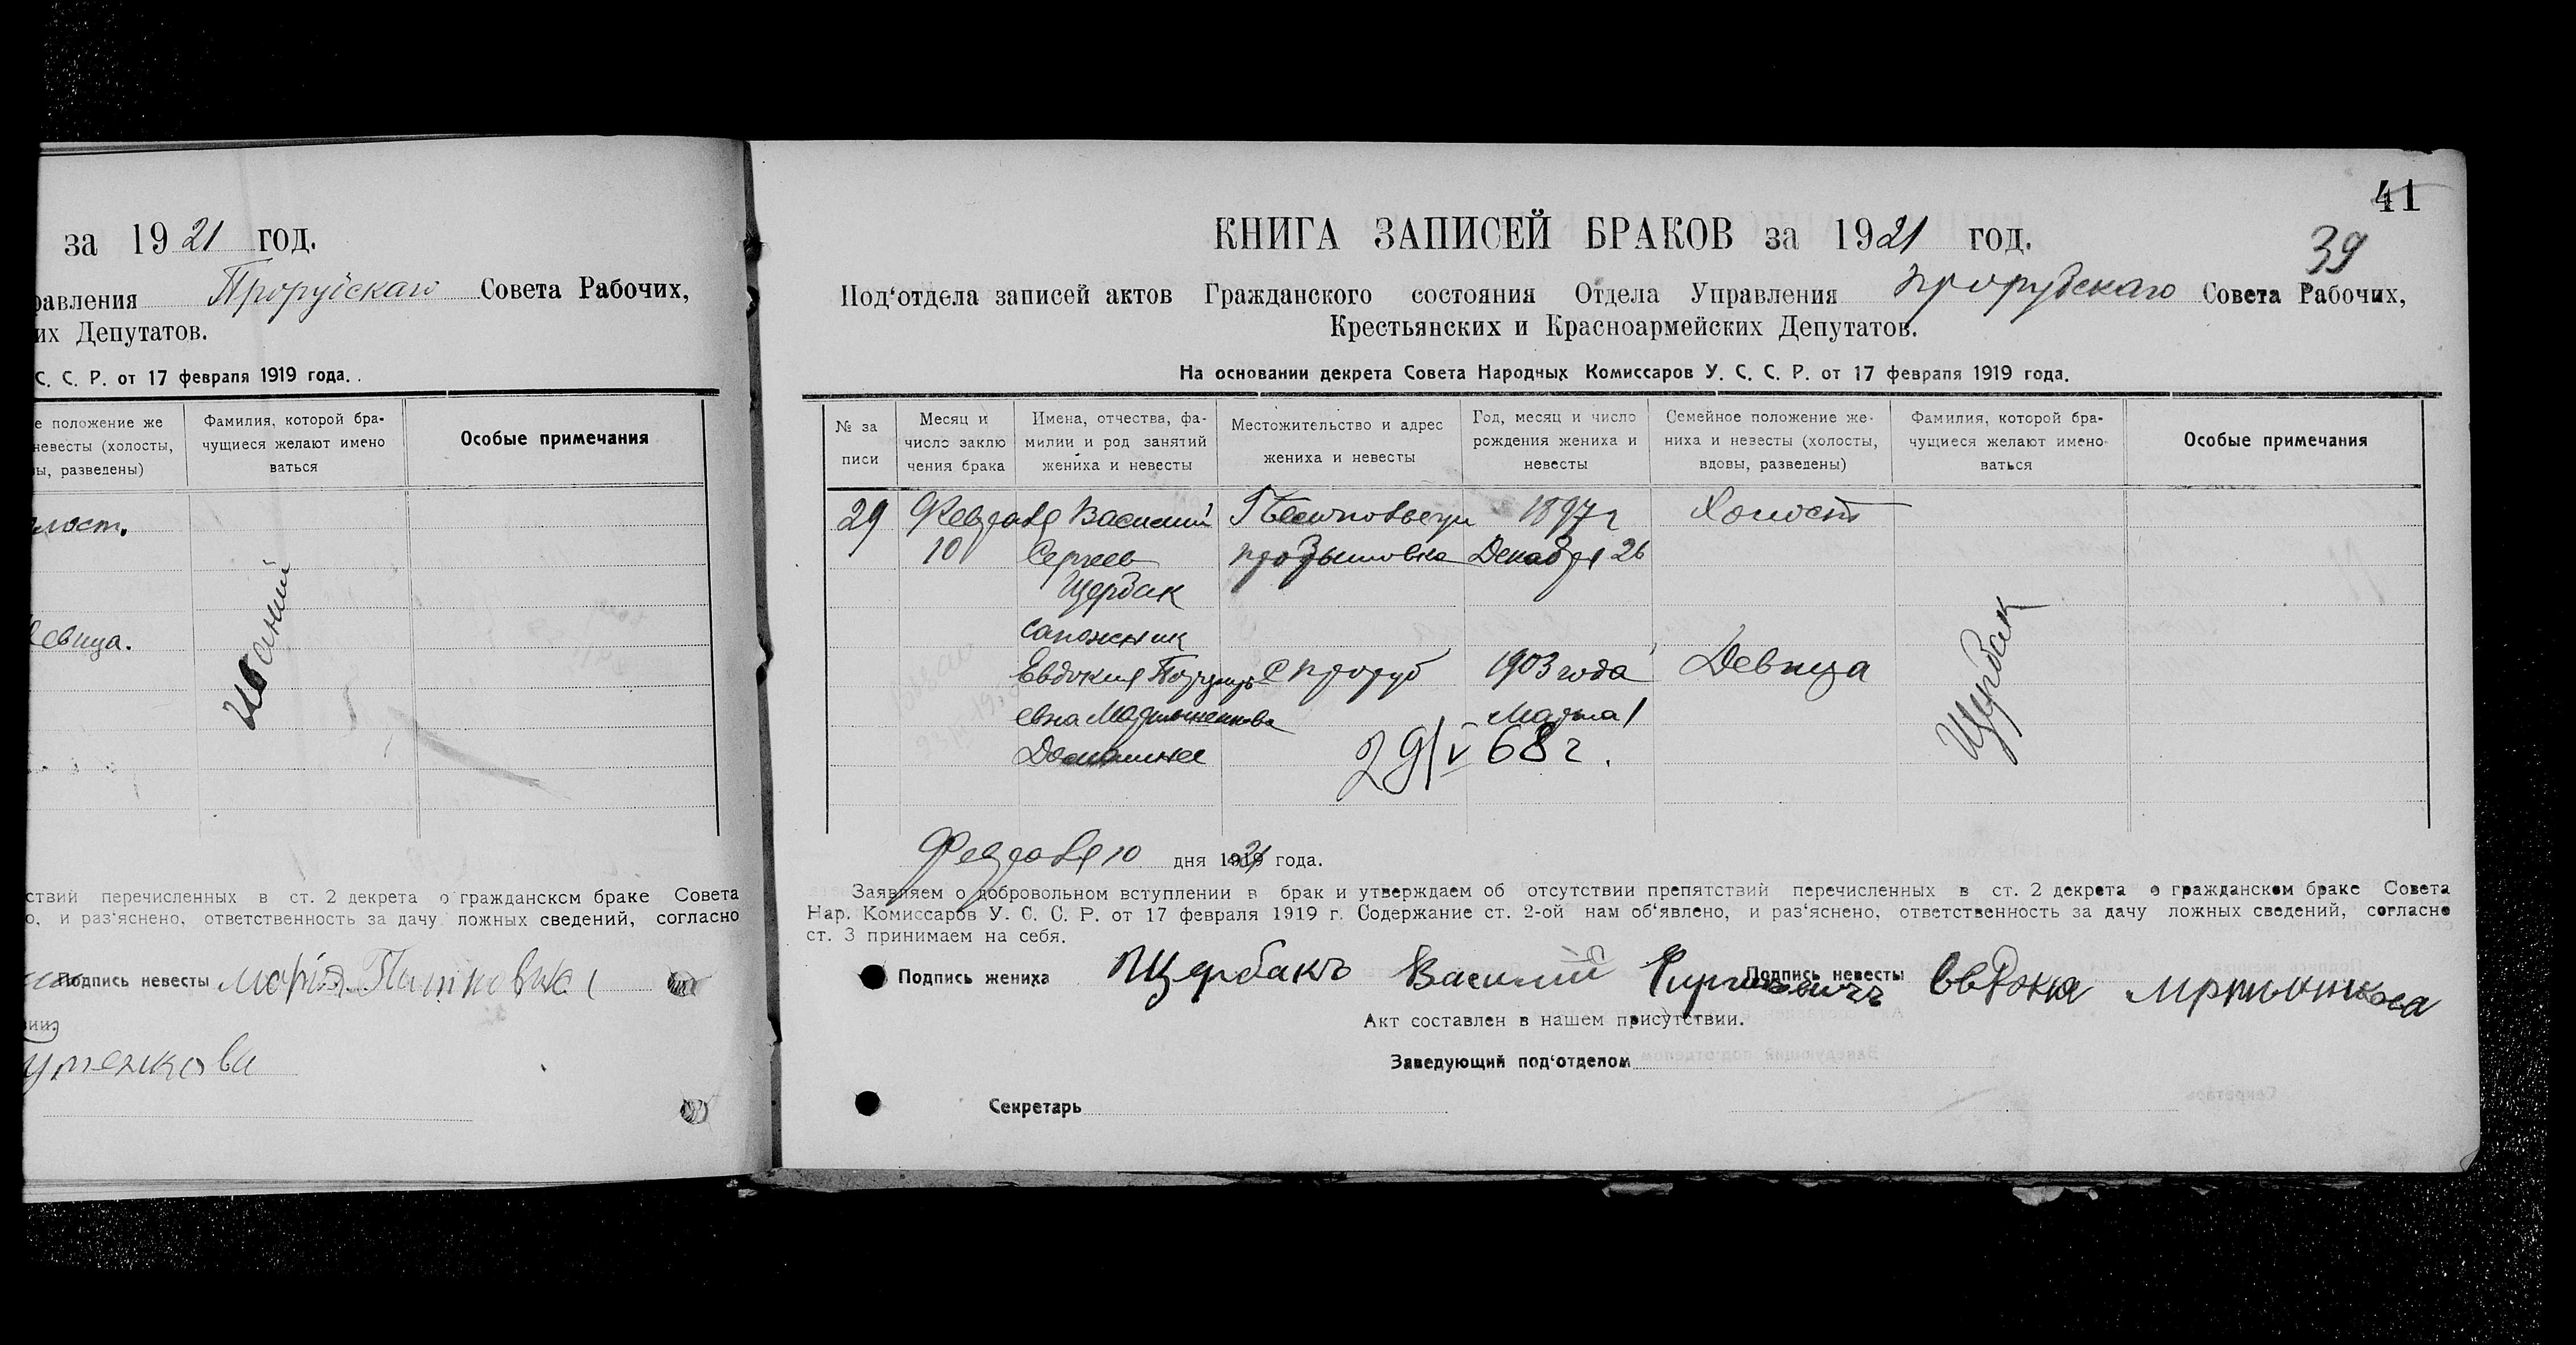 за 1921 год.
равления Прорубскаго Совета Рабочих,
их Депутатов.
С. С. Р. от 17 февраля 1919 года.
е положение же
невесты (холосты,
ы, разведены)
Фамилия, которой бра-
чущиеся желают имено
ваться
Особые примечания
лост.
евица.
ствий перечисленных в ст. 2 декрета о гражданском браке Совета
о, и раз‘яснено, ответственность за дачу ложных сведений, согласно
Подпись невесты Марія
41
39
КНИГА ЗАПИСЕЙ БРАКОВ за 1921 год.
Под‘отдела записей актов Гражданского состояния Отдела Управления Прорубскаго Совета Рабочих,
Крестьянских и Красноармейских Депутатов.
На основании декрета Совета Народных Комиссаров У. С. С. Р. от 17 февраля 1919 года.
№ за
писи
Месяц и
число заклю
чения брака
Имена, отчества, фа-
милии и род занятий
жениха и невесты
Местожительство и адрес
жениха и невесты
Год, месяц и число
рождения жениха и
невесты
Семейное положение же-
ниха и невесты (холосты,
вдовы, разведены)
Фамилия, которой бра-
чущиеся желают имено-
ваться
Особые примечания
29 Февраля Василий 1897 г Холост
10 Сергеев Декабря 26
Щербак
сапожник
Евдокия с Проруб 1903 года Девица
евна Мартыненкова Марта 1
Домашнее
29/V 68 г.
Щербак
Февраля 10 дня 1921 года.
Заявляем о добровольном вступлении в брак и утверждаем об отсутствии препятствий перечисленных в ст. 2 декрета о гражданском браке Совета
Нар. Комиссаров У. С. С. Р. от 17 февраля 1919 г. Содержание ст. 2-ой нам об‘явлено, и раз‘яснено, ответственность за дачу ложных сведений, согласно
ст. 3 принимаем на себя.
Подпись жениха Щербакъ Василий Подпись невесты
Акт составлен в нашем присутствии.
Заведующий под‘отделом
Секретарь